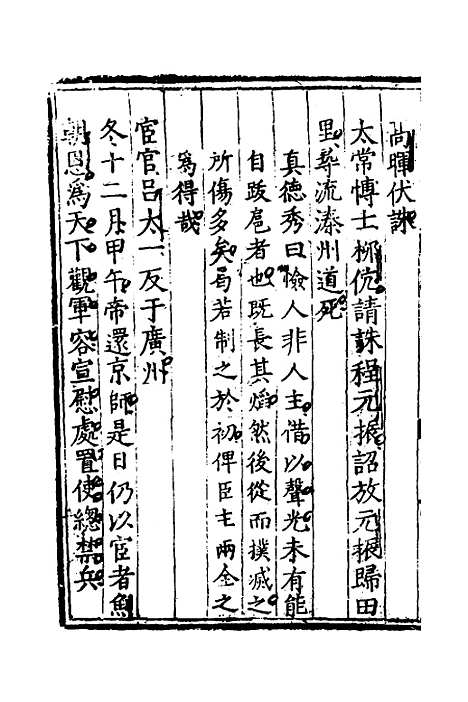 尚暉伏誅
太常博士桺伉請誅程元振詔放元振歸田
里尋流溱州道死
真德秀曰憸人非人主借以聲光未有能
自跋扈者也既長其熖然後從而撲滅之
所傷多矣曷若制之於初俾臣主兩全之
爲得哉
宦官吕太一反于廣州
冬十二月甲午帝還京師是日仍以宦者魚
朝恩爲天下觀軍容宣慰處置使總禁兵